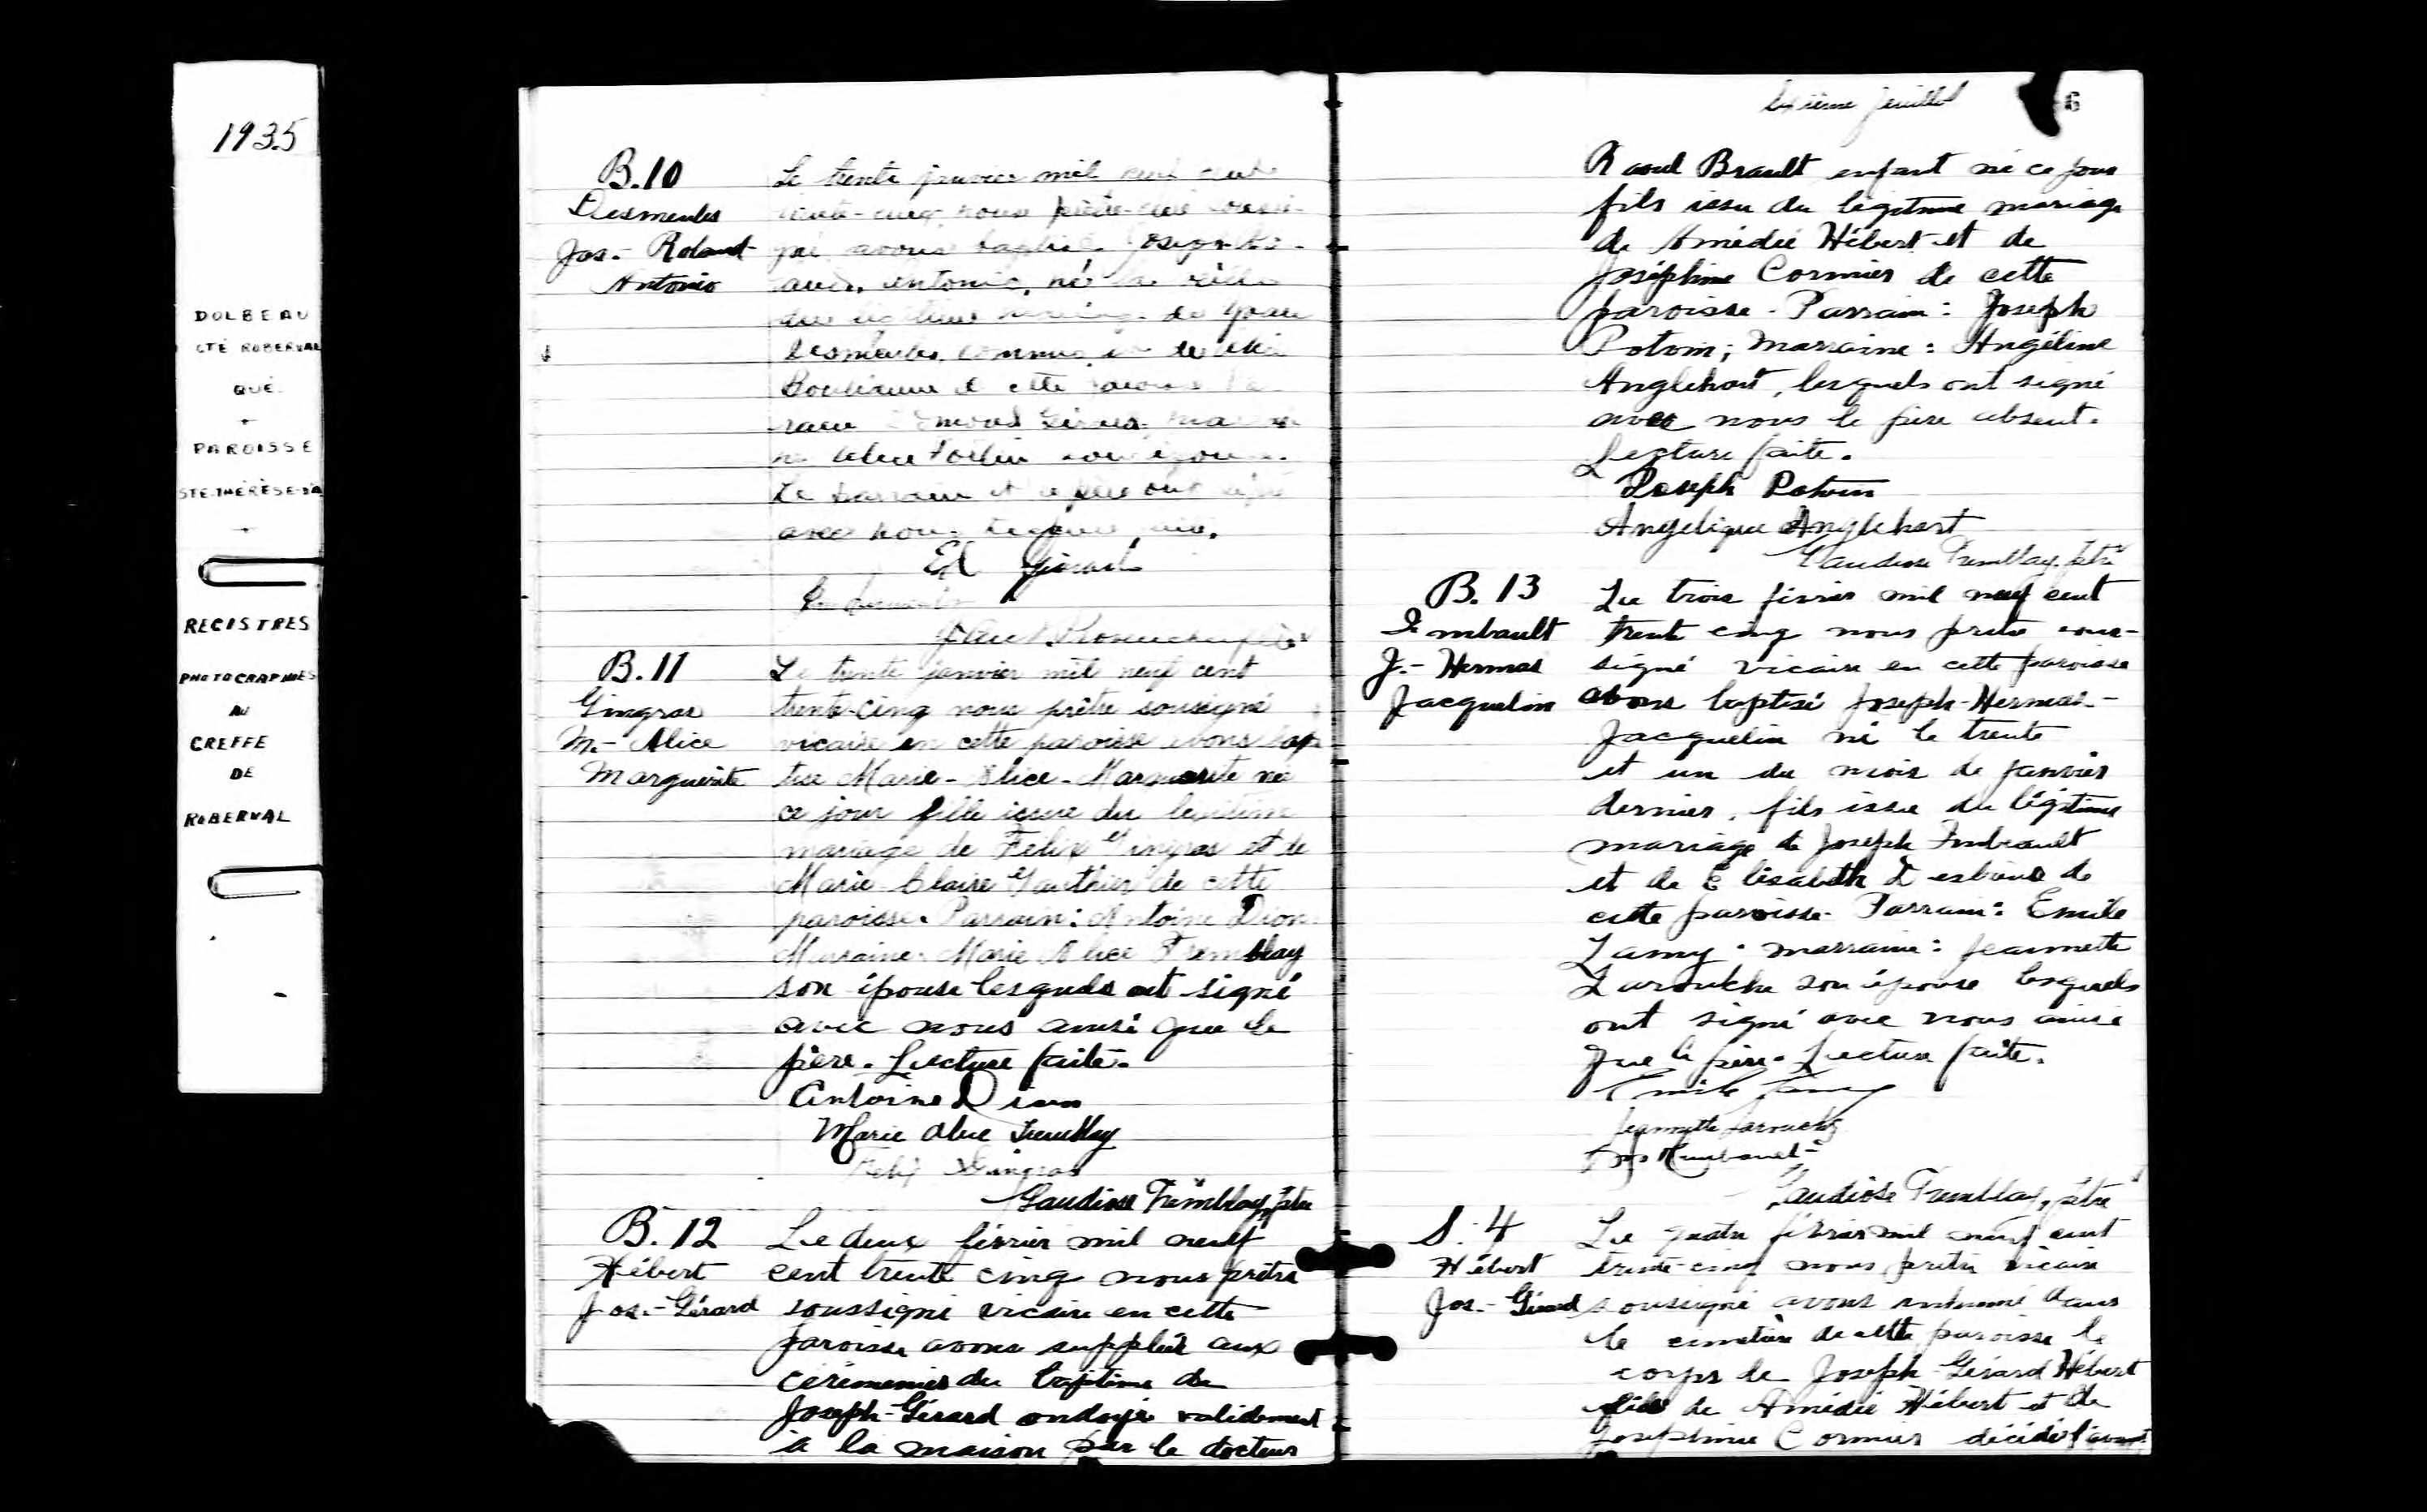 1935
DOLBEAU
CTÉ ROBERVAL
QUÉ.
PAROISSE
STE-THÉRÈSE-D'A
REGISTRES
PHOTOGRAPHIÉS
AU
GREFFE
DE
ROBERVAL
B.10
Desmeules
Jos.- Roland
Antonio
Le trente janvier mil neuf cent
trente-cinq nous prêtre-curé soussi-
gné avons baptisé Joseph-Ro-
land, Antonio, né la veille
du légitime mariage de
Desmeules, commis et de
de cette paroisse Par-
rain Edmond marrai-
ne Alice Fortin son épouse.
Le parrain et le père ont signé
avec nous. Lecture faite.
Ed Girard
B.11
Gingras
M.- Alice
Marguerite
Le trente janvier mil neuf cent
trente-cinq nous prêtre soussigné
vicaire en cette paroisse avons bap
tisé Marie-Alice-Marguerite née
ce jour fille issue du légitime
mariage de Félix Gingras et de
Marie-Claire Gauthier de cette
paroisse. Parrain: Antoine Dion
Marraine: Marie Alice Tremblay
son épouse lesquels ont signé
avec nous ainsi que le
père. Lecture faite.
Antoine Dion
Marie Alice Tremblay
Félix Gingras
Gaudiose Tremblay, ptre
B.12
Hébert
Jos.-Gérard
Le deux février mil neuf
cent trente cinq nous prêtre
soussigné vicaire en cette
paroisse avons suppléé aux
cérémonies du baptême de
Joseph-Gérard ondoyé validement
à la maison par le docteur
sixième feuillet
6
Raoul Brault enfant né ce jour
fils issu du légitime mariage
de Amédée Hébert et de
Joséphine Cormier de cette
paroisse. Parrain: Joseph
Potvin; Marraine: Angéline
Anglehart, lesquels ont signé
avec nous le père absent.
Lecture faite.
Joseph Potvin
Angelique Anglehart
Gaudiose Tremblay, ptre
B.13
Imbault
J.- Hermas
Jacquelin
Le trois février mil neuf cent
trente cinq nous prêtre sous-
signé vicaire en cette paroisse
avons baptisé Joseph-Hermas-
Jacquelin né le trente
et un du mois de janvier
dernier, fils issu du légitime
mariage de Joseph Imbeault
et de Elisabeth de
cette paroisse. Parrain: Emile
Lamy; marraine: Jeannette
Larouche son épouse lesquels
ont signé avec nous ainsi
que le père. Lecture faite.
Emile Lamy
Jeannette Larouche
Jos Imbault
Gaudiose Tremblay, ptre
S.4
Hébert
Jos.-Gérard
Le quatre février mil neuf cent
trente-cinq nous prêtre vicaire
soussigné avons inhumé dans
le cimetière de cette paroisse le
corps de Joseph-Gérard Hébert
fils de Amédée Hébert et de
Joséphine Cormier décédé l'avant